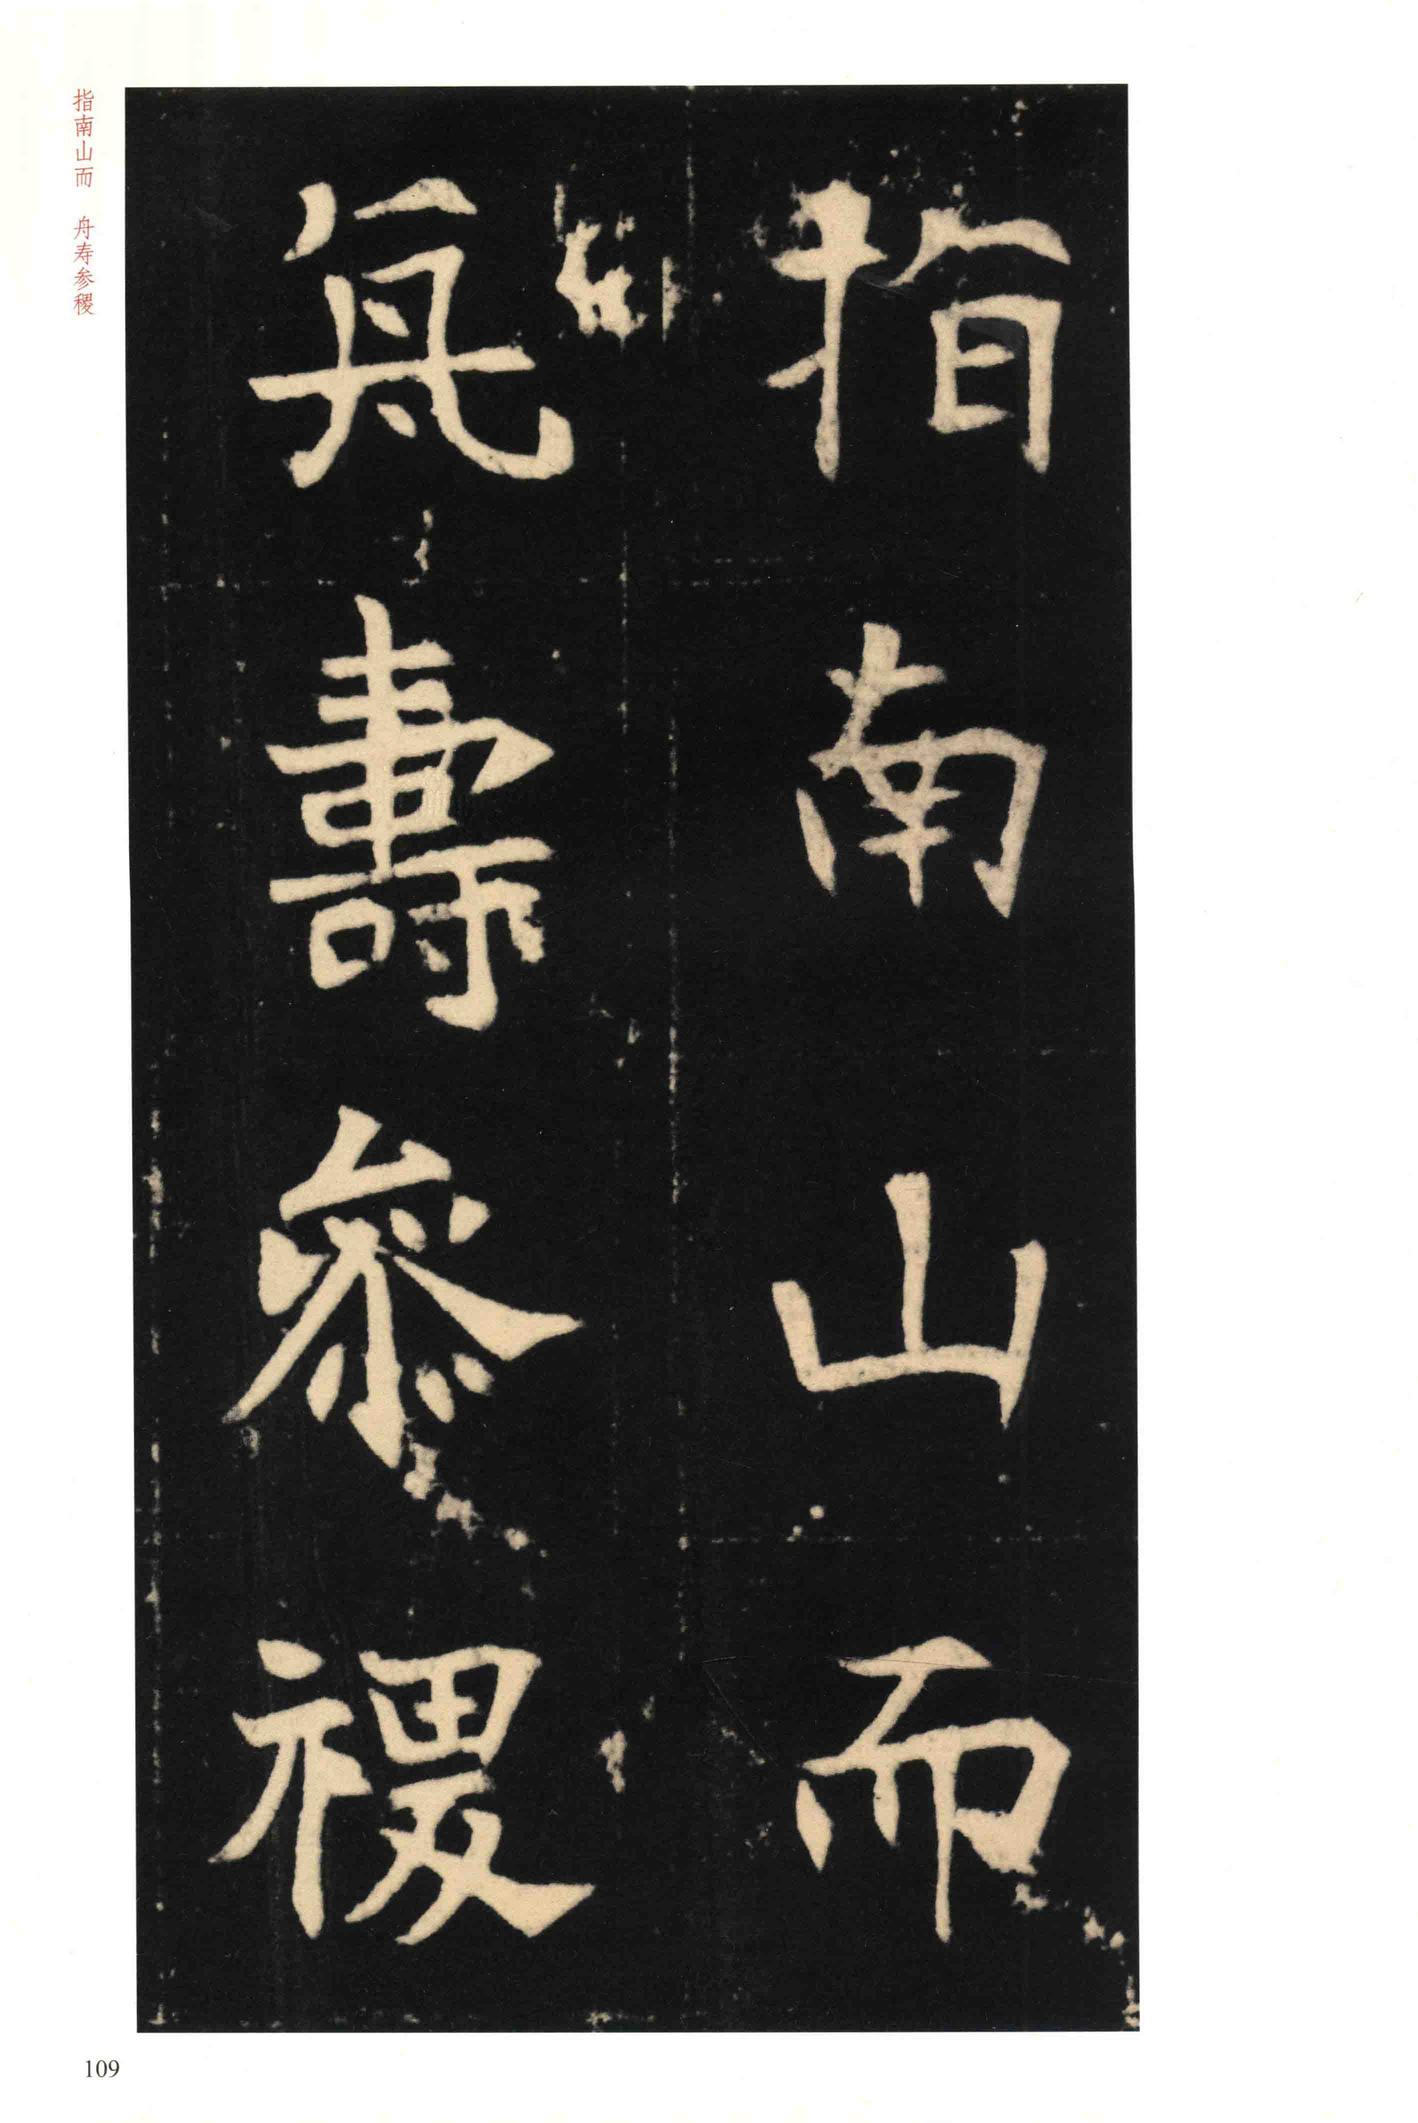 指南山而
舟壽參禝
指南山而 舟寿参稷
109